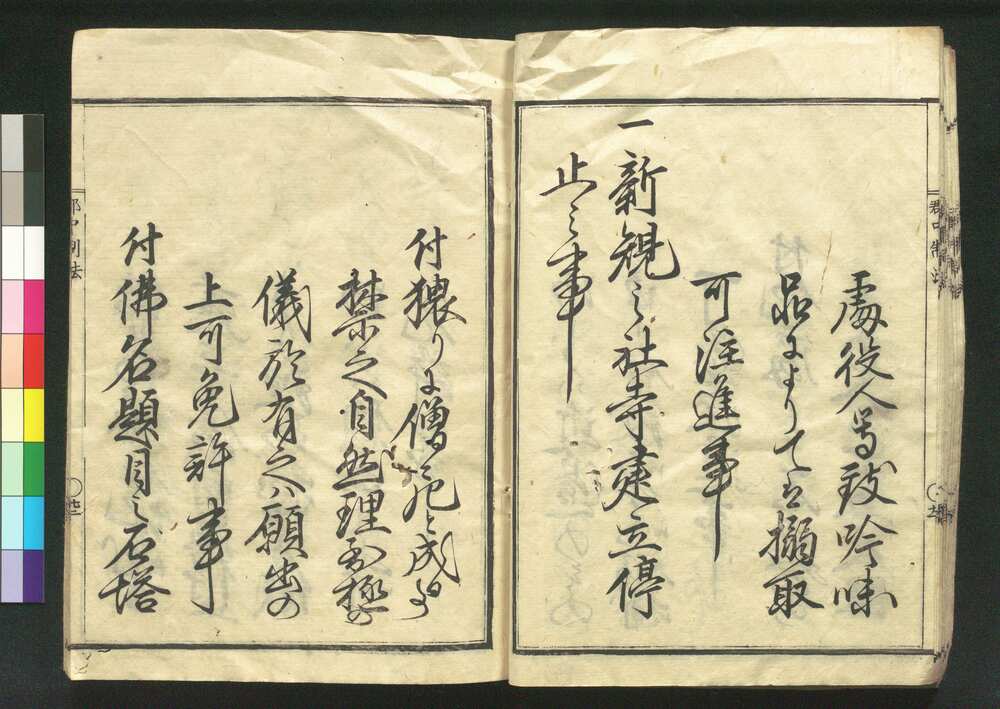 郡中制法
處役人等致吟味
品によりて者搦取
可注進事
一新規之社寺建立停
止之事
付猥りに僧尼と成
禁之自然理至極の
儀於有之ハ願出の
上可免許事
付佛名題目之石塔
郡中制法
廿三